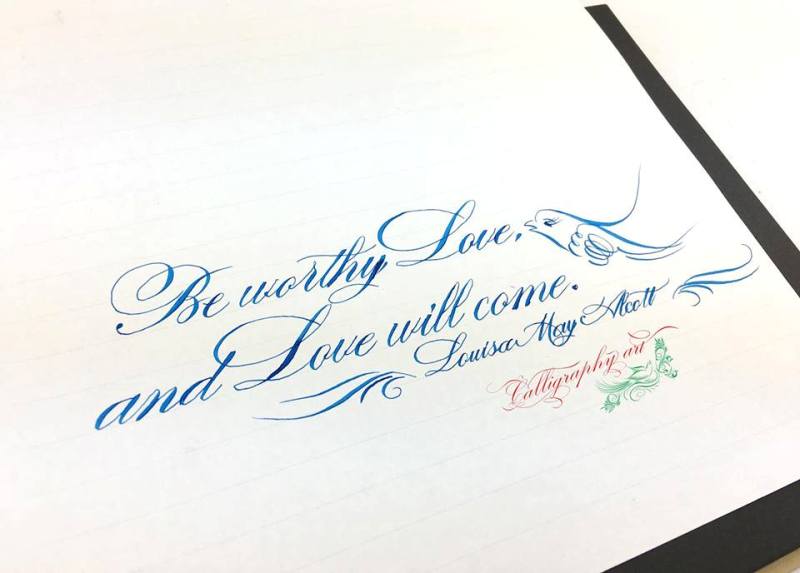 Be worthy Love,
and Love will come.
Louisa May Alcott
Calligraphy art